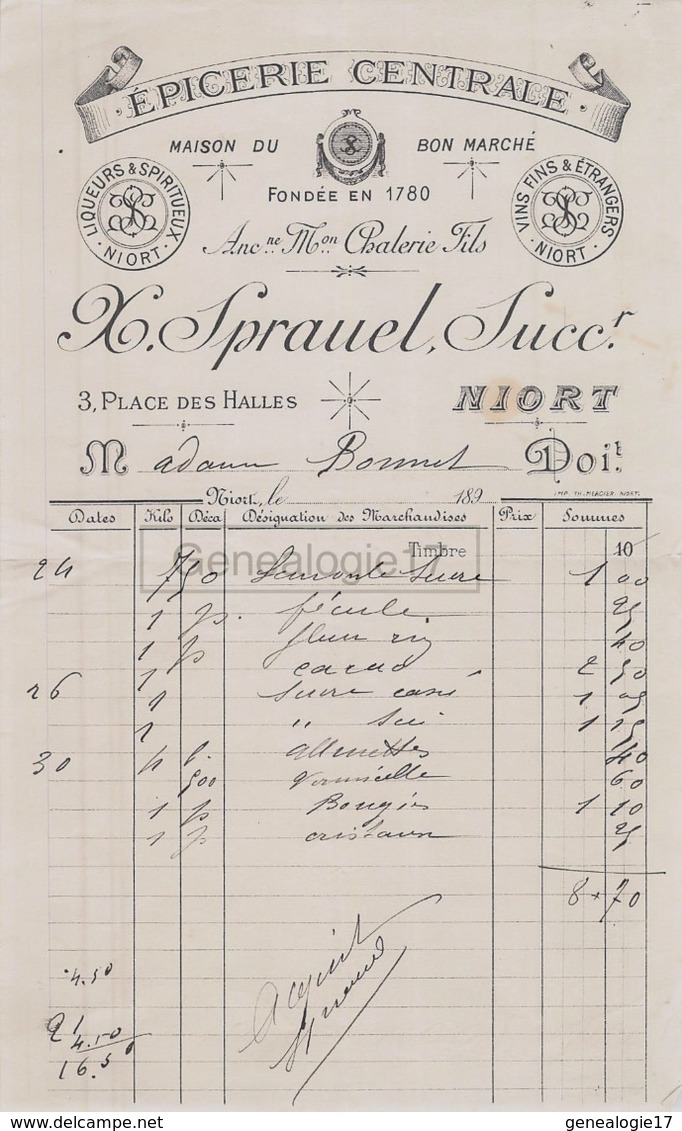 ÉPICERIE CENTRALE
MAISON DU BON MARCHÉ
LIQUEURS & SPIRITUEUX
NIORT
VINS FINS & ÉTRANGERS
NIORT
FONDÉE EN 1780
Anc.ne M.on Chalerie Fils
X. Sprauel, Succ.r
3, PLACE DES HALLES NIORT
Madame Bonnet Doit.
IMP. TH. MERCIER. NIORT.
Niort, le 189
Dates Kilo Déca Désignation des Marchandises Prix Sommes
Timbre 10
Genealogie17
24 Sucre 1 00
1 p. fécule 25
1 p fleur riz 40
1 cacao 2 50
26 1 Sucre cassé 1 05
1 " 1 15
30 4 allumettes 40
500 Vermicelle 60
1 p Bougies 1 10
1 p cristaux 25
8 70
Acquit
4.50
21
4.50
16.50
genealogie17
genealogie17